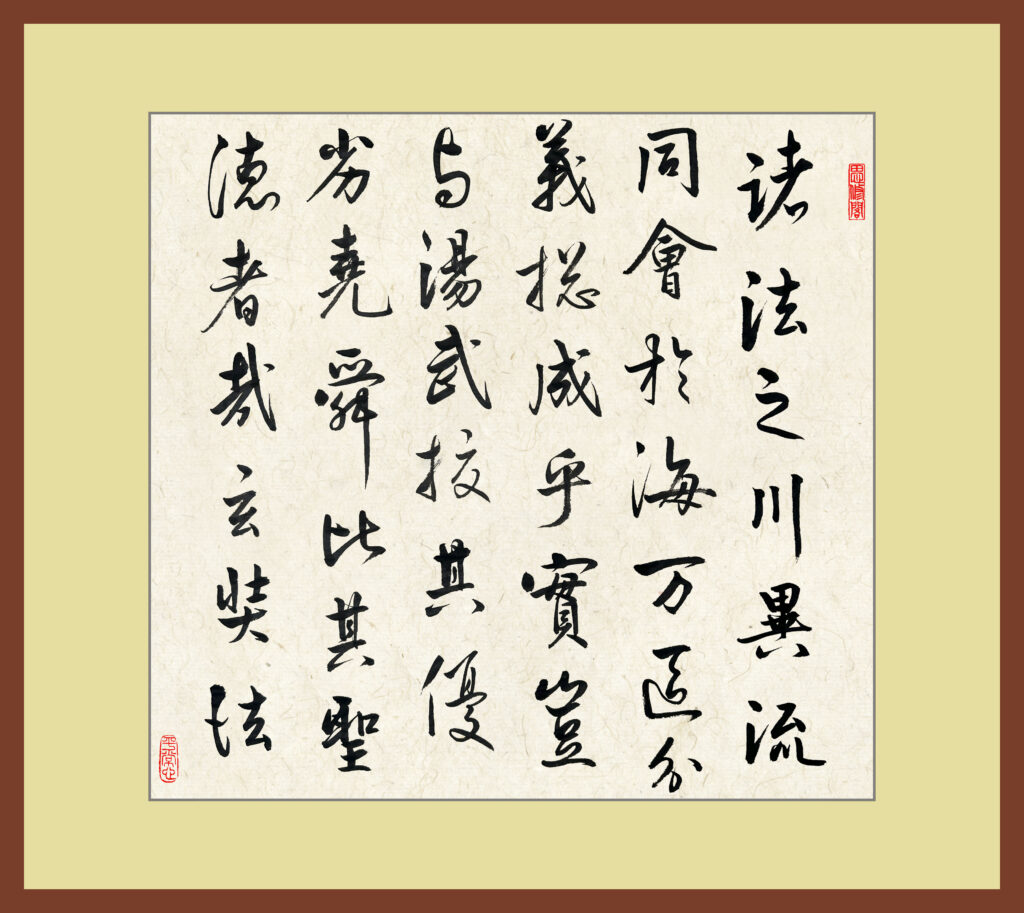 思修閣
諸法之川異流
同會於海万區分
義揔成乎實豈
与湯武挍其優
劣堯舜比其聖
德者哉玄奘法
平常心